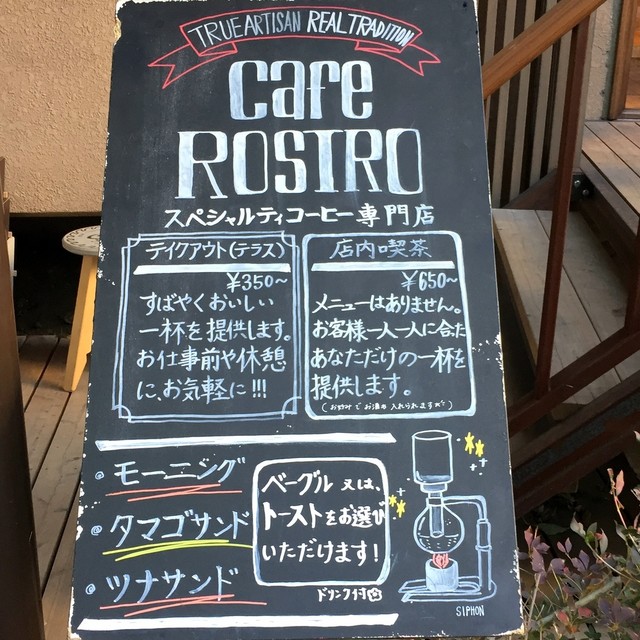 TRUE ARTISAN REAL TRADITION
cafe
ROSTRO
スペシャルティコーヒー専門店
テイクアウト(テラス)
¥350~
すばやくおいしい
一杯を提供します。
お仕事前や休憩
に、お気軽に!!!
店内喫茶
¥650~
メニューはありません。
お客様一人一人に合た
あなただけの一杯を
提供します。
(お好みでお酒も入れられます
モーニング
タマゴサンド
ツナサンド
ベーグル 又は、
トーストをお選び
いただけます!
ドリンク付
SIPHON